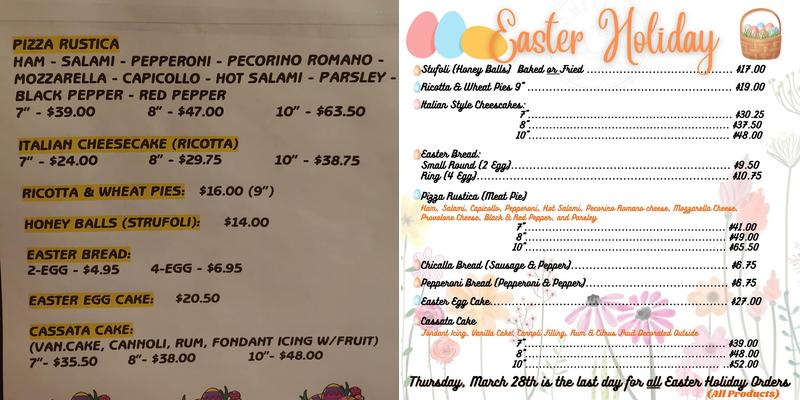 PIZZA RUSTICA
HAM - SALAMI - PEPPERONI - PECORINO ROMANO -
MOZZARELLA - CAPICOLLO - HOT SALAMI - PARSLEY -
BLACK PEPPER - RED PEPPER
7" - $39.00 8" - $47.00 10" - $63.50
ITALIAN CHEESECAKE (RICOTTA)
7" - $24.00 8" - $29.75 10" - $38.75
RICOTTA & WHEAT PIES: $16.00 (9")
HONEY BALLS (STRUFOLI): $14.00
EASTER BREAD:
2-EGG - $4.95 4-EGG - $6.95
EASTER EGG CAKE: $20.50
CASSATA CAKE:
(VAN.CAKE, CANNOLI, RUM, FONDANT ICING W/FRUIT)
7"- $35.50 8"- $38.00 10"- $48.00
Easter Holiday
Stufoli (Honey Balls) Baked or Fried $17.00
Ricotta & Wheat Pies 9" $19.00
Italian Style Cheescakes:
7" $30.25
8" $37.50
10" $48.00
Easter Bread:
Small Round (2 Egg) $9.50
Ring (4 Egg) $10.75
Pizza Rustica (Meat Pie)
Ham, Salami, Capicollo, Pepperoni, Hot Salami, Pecorino Romano cheese, Mozzarella Cheese,
Provolone Cheese, Black & Red Pepper, and Parsley
7" $41.00
8" $49.00
10" $65.50
Chicalla Bread (Sausage & Pepper) $6.75
Pepperoni Bread (Pepperoni & Pepper) $6.75
Easter Egg Cake $27.00
Cassata Cake
Fondant Icing, Vanilla Cake, Cannoli Filling, Rum & Citrus Fruit Decorated Outside
7" $39.00
8" $48.00
10" $52.00
Thursday, March 28th is the last day for all Easter Holiday Orders
(All Products)